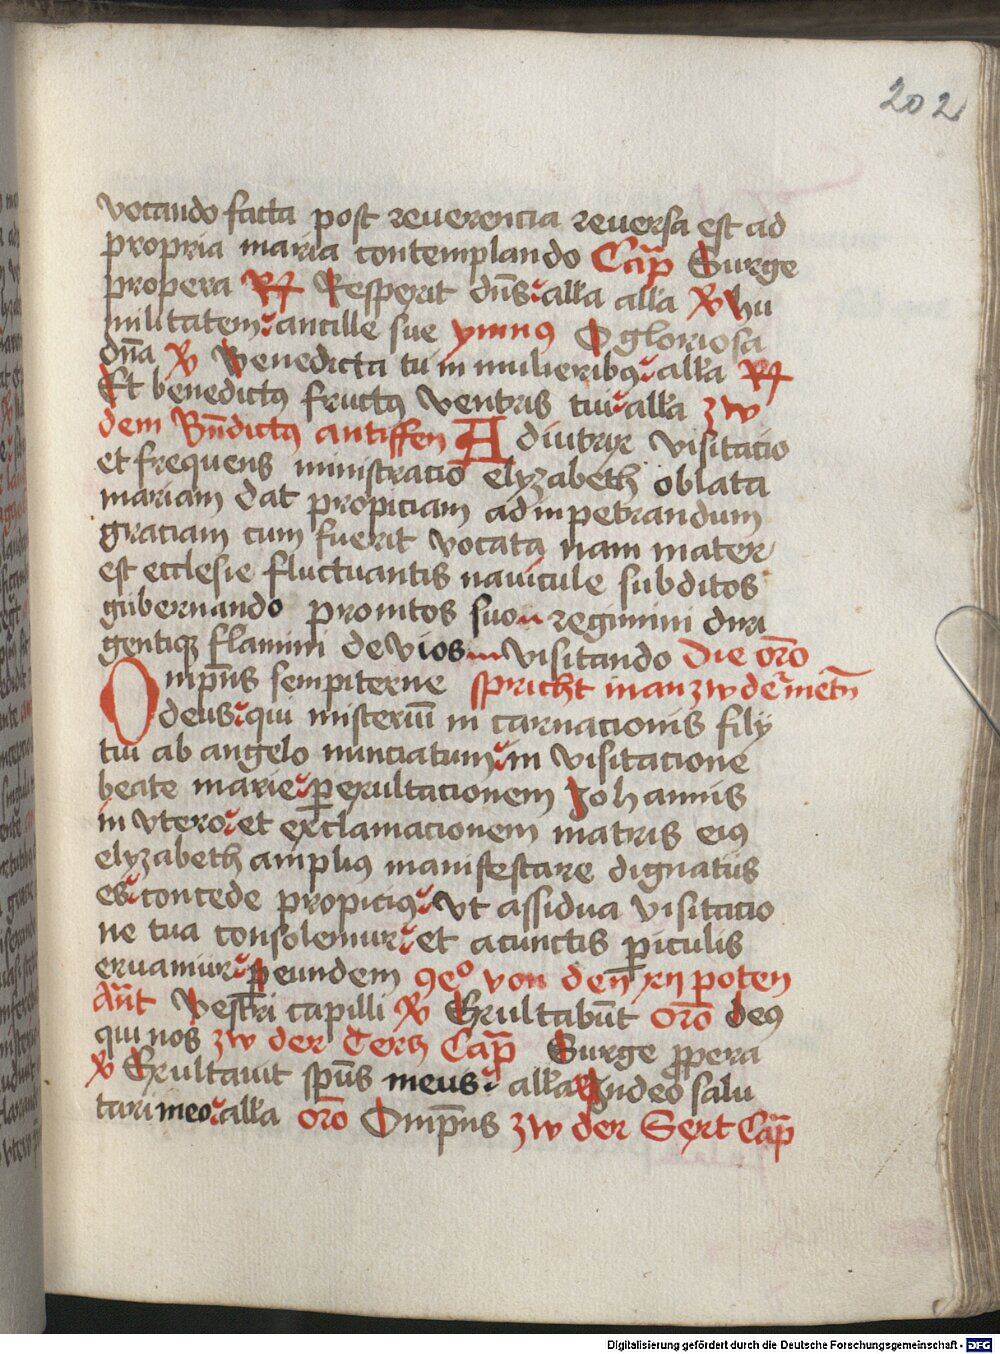 202
vocando facta post reuerencia reuersa est ad
propria maria contemplando Cap̄ Surge
propera R̷ Resperit dn̄s alľa alľa V̷ hu
militatem ancille sue ymnꝰ O gloriosa
dn̄a V̷ Benedicta tu in mulieribꝰ alľa R̷
Et benedictꝰ fructꝰ ventris tui alľa zw
dem Bn̄dictꝰ antiffen A diutrix visitacio
et frequens ministracio elyzabeth oblata
mariam dat propiciam ad inpetrandum
graciam cum fuerit vocata nam mater
est ecclesie fluctuantis nauicule subditos
gubernando promtos suo regimini diri
gentiqꝫ flamini devios visitando Die or̄o
Omp̄ns sempiterne spricht man zw der metn̄
deus qui misteriū in carnacionis filÿ
tui ab angelo nunciatum in visitacione
beate marie ꝑ exultacionem Johannis
in vtero et exclamacionem matris eiꝰ
elyzabeth ampliꝰ manifestare dignatus
es concede propiciꝰ vt assidua visitacio
ne tua consolemur et acunctis ꝑiculis
eruamur ꝑ eundem ꝯeº von den xii poten
Ant̄ Vestri capilli V̷ Exultabūt or̄o deꝰ
qui nos zw der Tercz Cap̄ Surge ꝓpera
V̷ Exultauit sp̄us meus alľa In deo salu
tari meo alľa or̄o Omp̄ns zw der Sext Cap̄
Digitalisierung gefördert durch die Deutsche Forschungsgemeinschaft - DFG